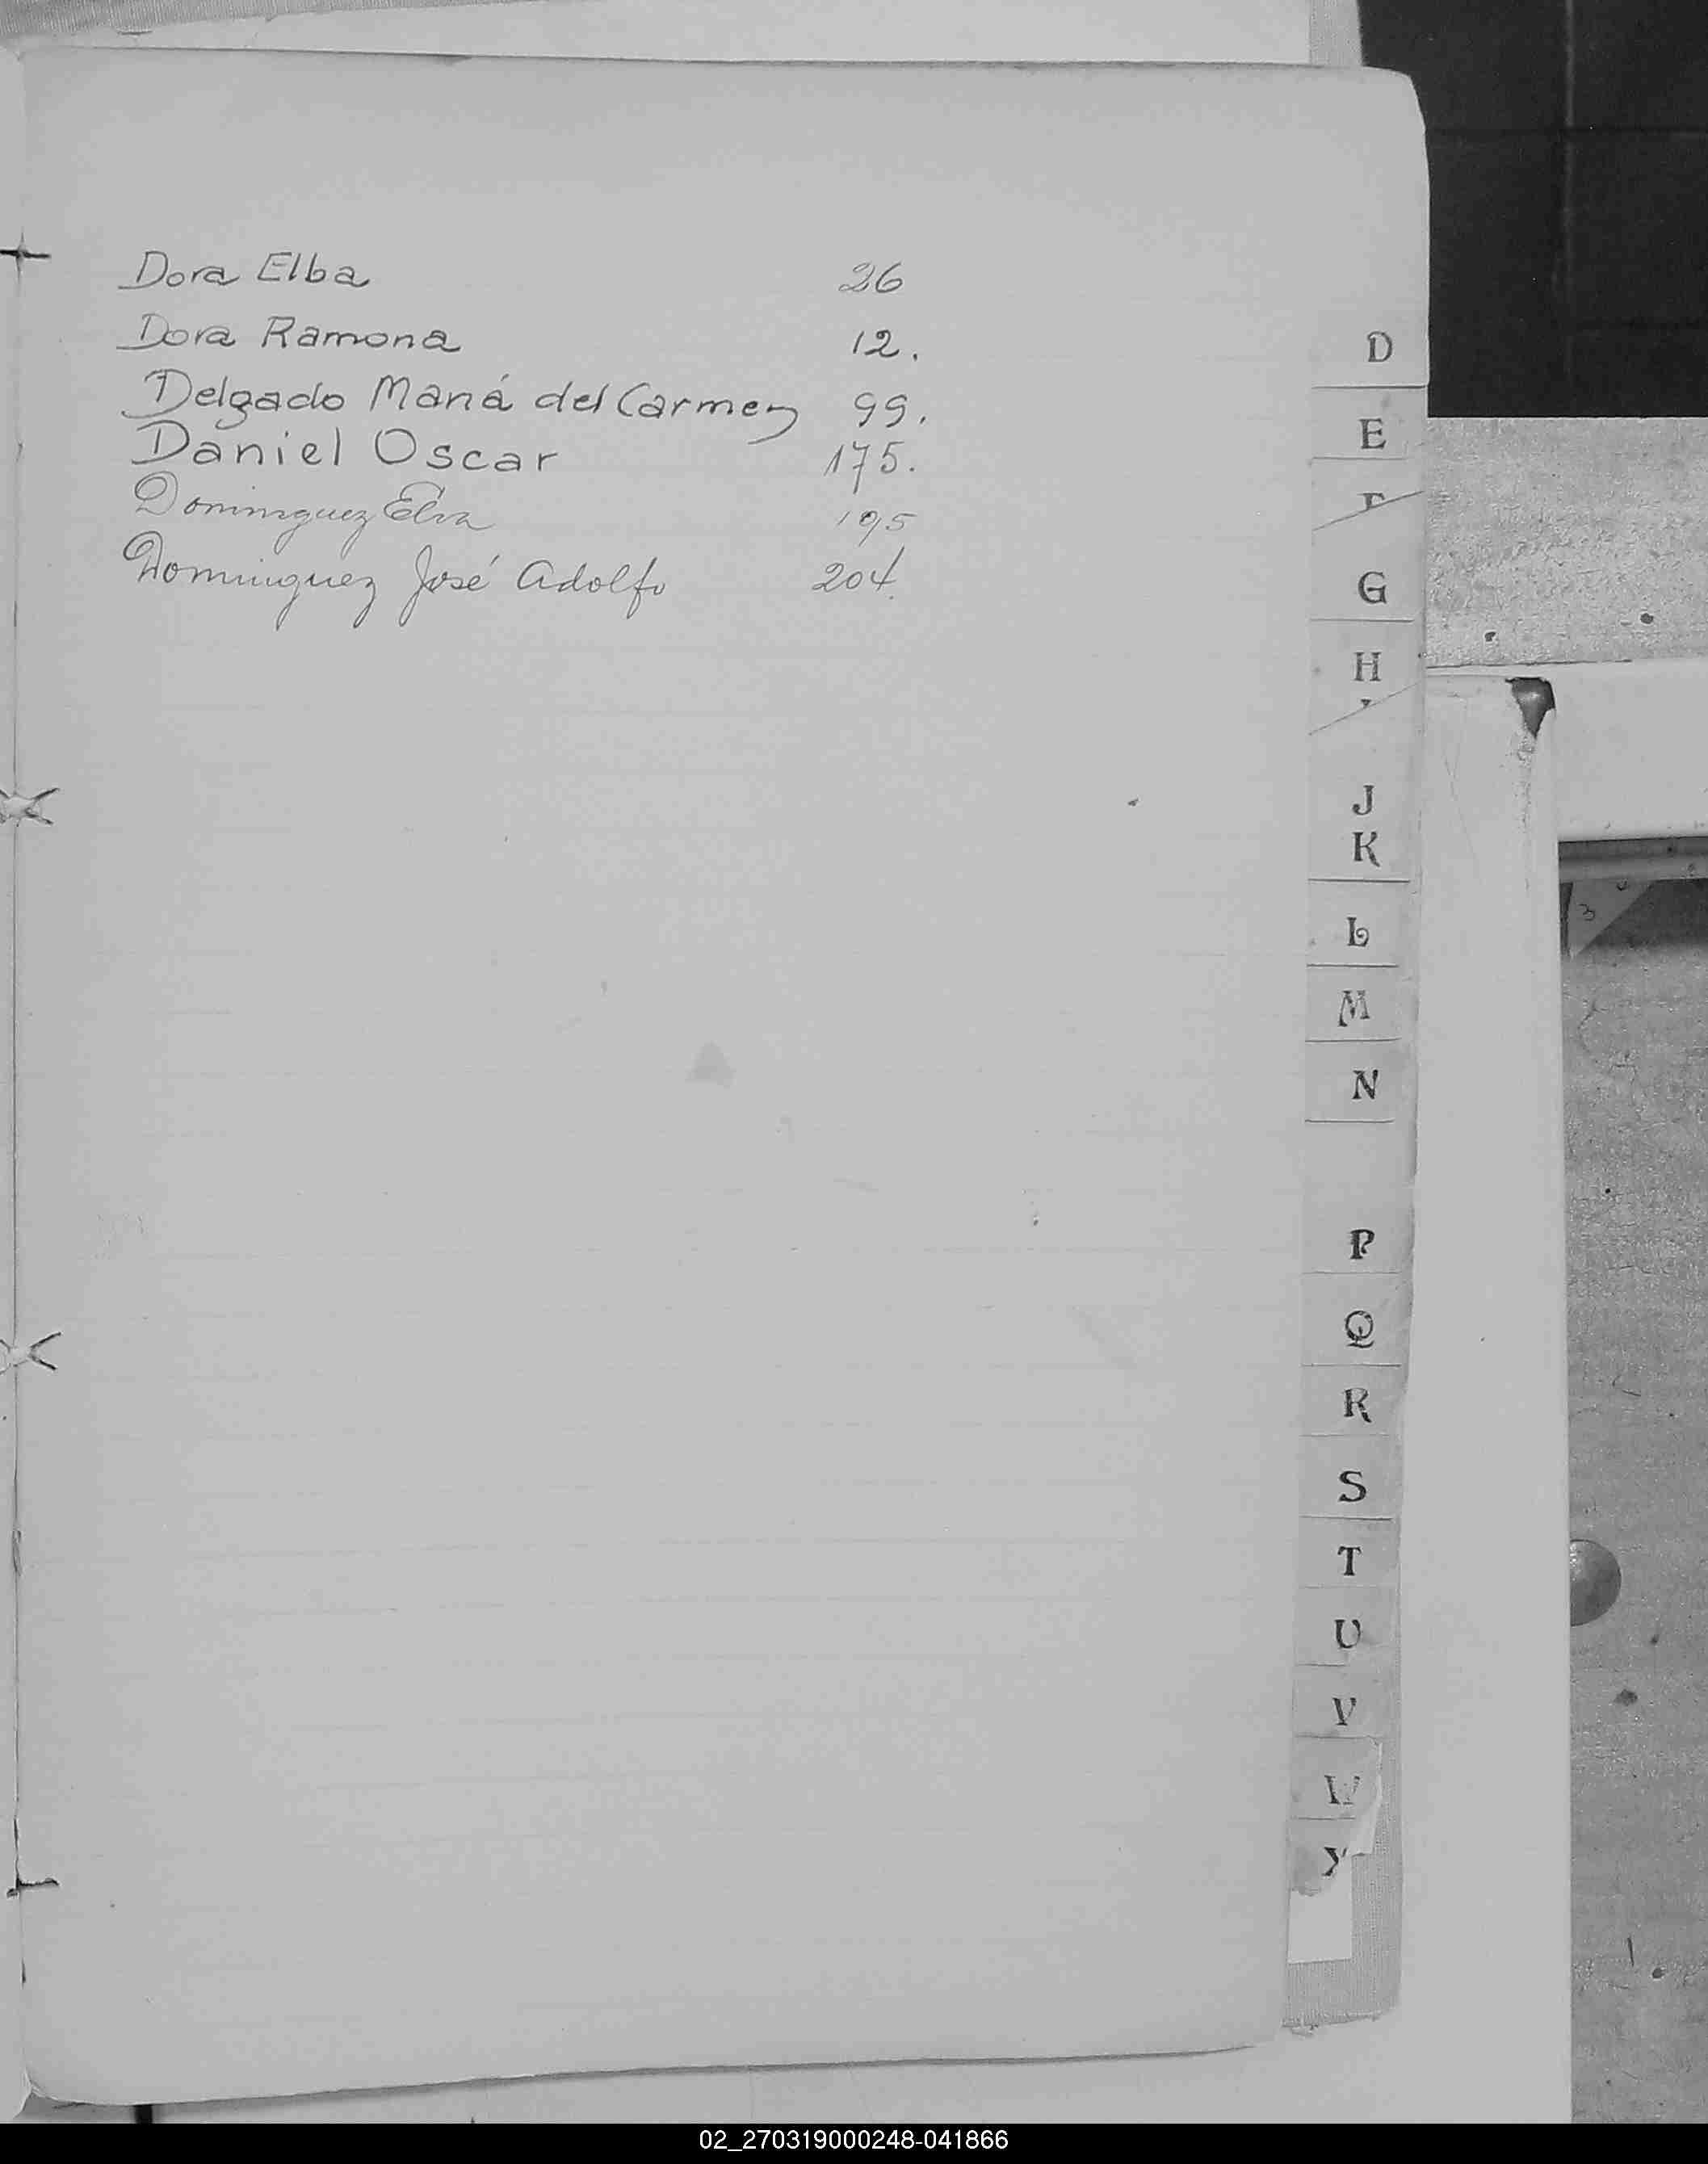 Dora Elba 26
Dora Ramona 12.
Delgado María del Carmen 99.
Daniel Oscar 175.
Dominguez Elva 195
Dominguez José Adolfo 204.
D
E
F
G
H
J
K
L
M
N
P
Q
R
S
T
U
V
W
X
3
02_270319000248-041866